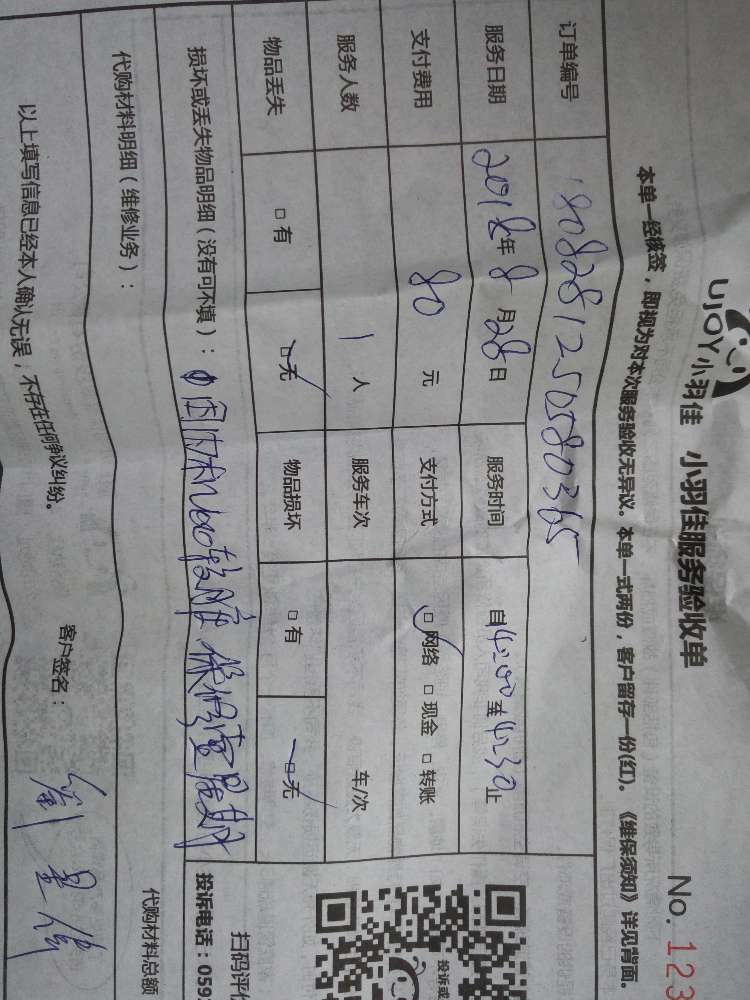 UJOY小羽佳 小羽佳服务验收单
No. 123
本单一经核签，即视为对本次服务验收无异议。本单一式两份，客户留存一份(红)。《维保须知》详见背面。
订单编号 1808281250580365
服务日期 2018年8月28日 服务时间 自 至 止
支付费用 80元 支付方式 □网络 □现金 □转账
服务人数 1人 服务车次 车/次
物品丢失 □有 □无 物品损坏 □有 □无
损坏或丢失物品明细（没有可不填）：
代购材料明细（维修业务）：
代购材料总额
以上填写信息已经本人确认无误；不存在任何争议纠纷。
客户签名：
投诉或
扫码评价
投诉电话：059